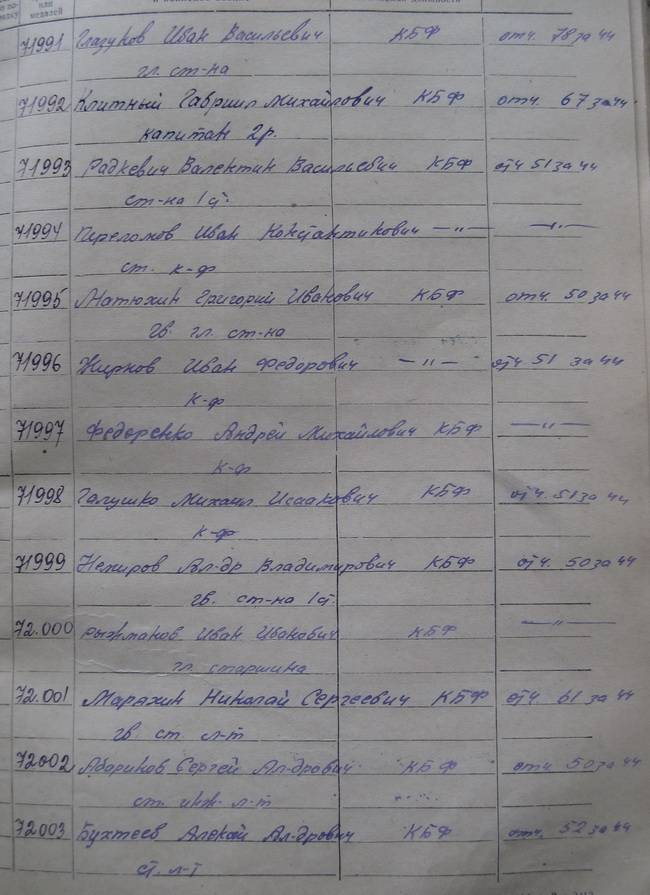 или
медалей
71991 Глазуков Иван Васильевич КБФ отч. 78 за 44
гл. ст-на
71992 Клитный Гавриил Михайлович КБФ отч. 67 за 44
капитан 2р.
71993 Радкевич Валентин Васильевич КБФ отч 51 за 44
ст-на 1ст.
71994 Переломов Иван Константинович —"— —"—
ст. к-ф
71995 Матюхин Григорий Иванович КБФ отч. 50 за 44
гв. гл. ст-на
71996 Жирнов Иван Федорович —"— отч 51 за 44
к-ф
71997 Федоренко Андрей Михайлович КБФ —"—
к-ф
71998 Галушко Михаил Исаакович КБФ отч. 51 за 44
к-ф
71999 Немиров Ал-др Владимирович КБФ отч. 50 за 44
гв. ст-на 1ст.
72.000 Рыжманов Иван Иванович КБФ —"—
гл. старшина
72.001 Маряхин Николай Сергеевич КБФ отч. 61 за 44
гв. ст. л-т
72002 Абориков Сергей Ал-дрович КБФ отч 50 за 44
ст. инж. л-т
72003 Бухтеев Алексей Ал-дрович КБФ отч. 52 за 44
ст. л-т